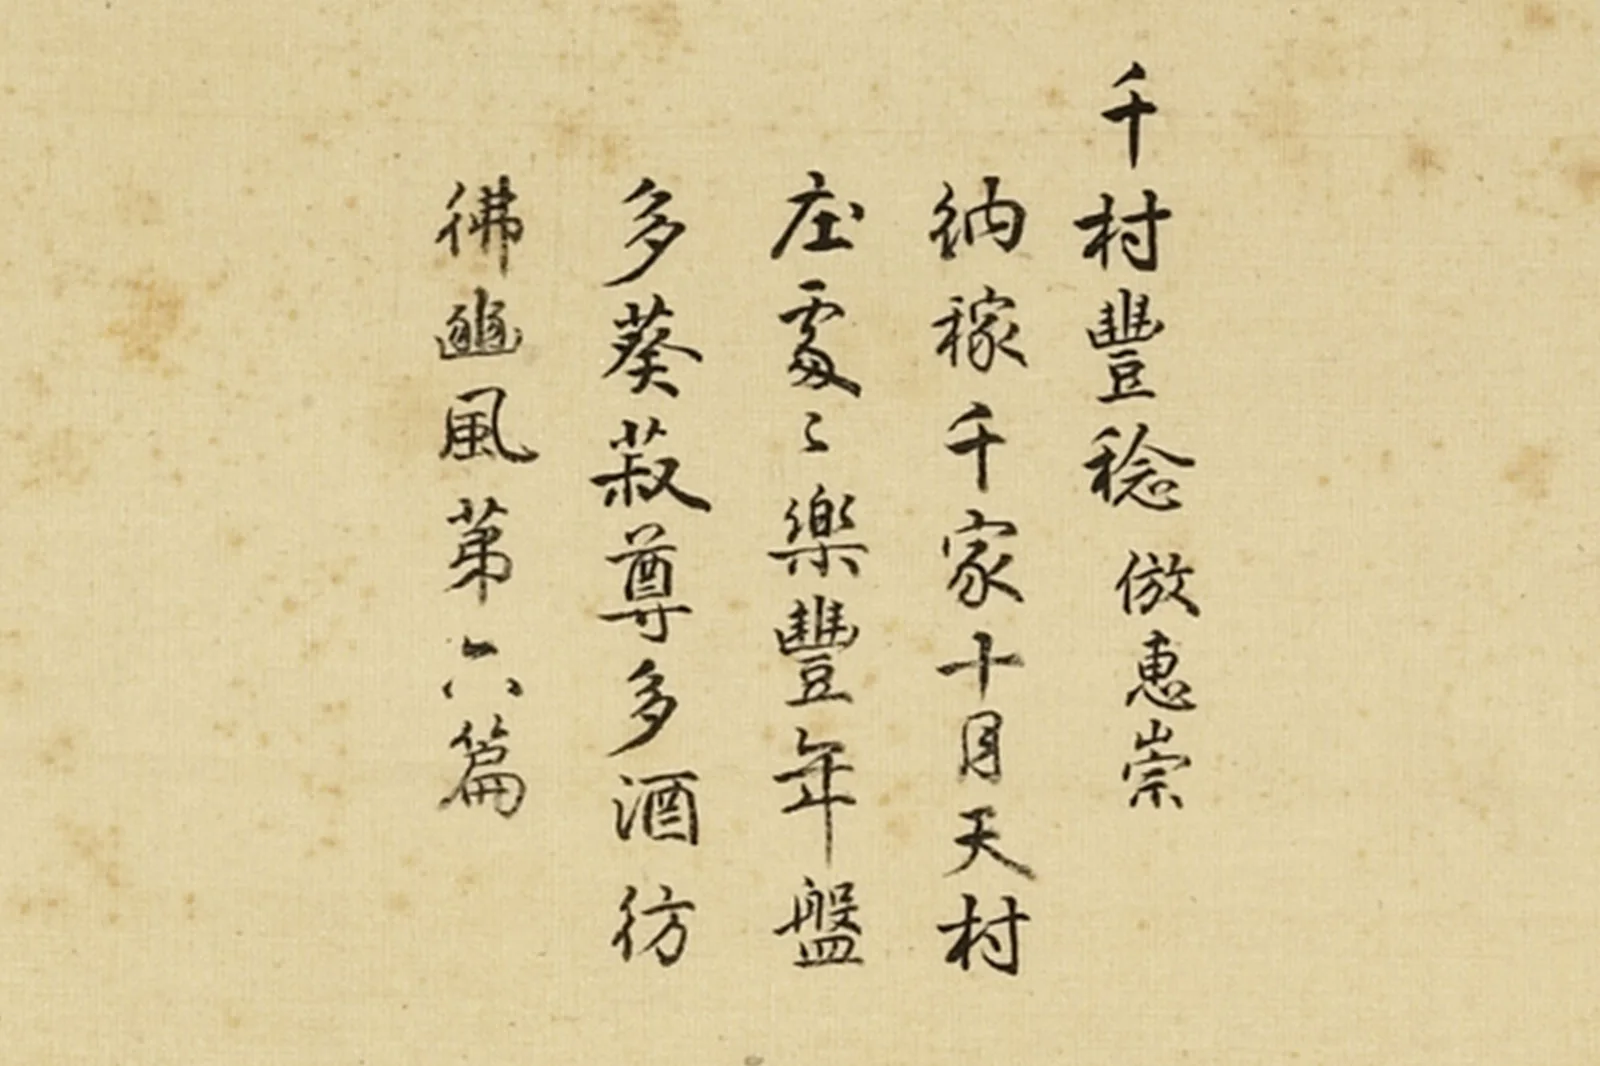 千村豐稔 倣惠崇
納稼千家十月天村
庄處〻樂豐年盤
多葵菽尊多酒彷
彿豳風第六篇